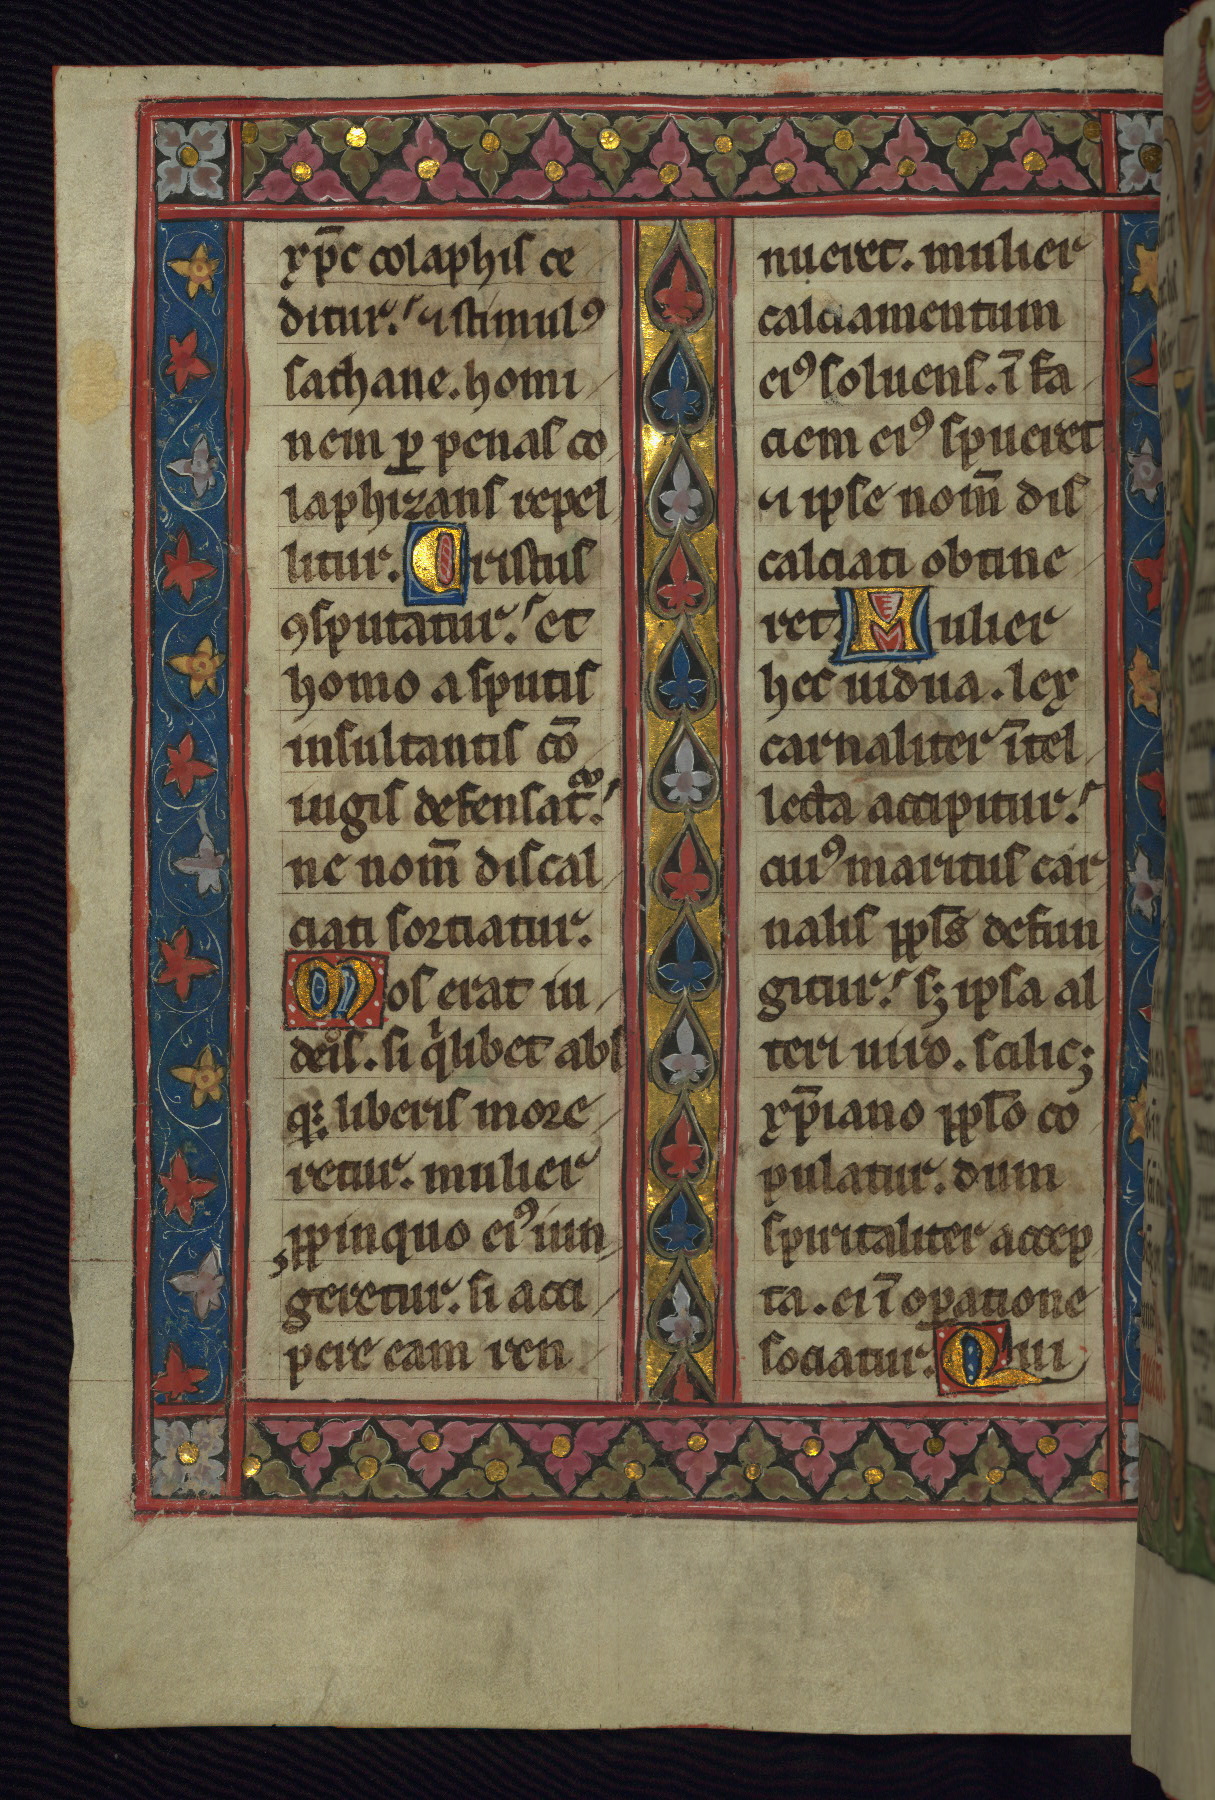 xp̄c colaphis ce
ditur. ⁊ stimulꝰ
sathane. homi
nem ꝑ penas co
laphizans repel
litur. Cristus
ꝯsputatur. et
homo a sputis
insultantis cō
iugis defensat᷑.
ne nom̄ discal
ciati sortiatur.
Mos erat iu
deis. si qͥlibet abs
qꝫ liberis more
retur. mulier
ꝓpinquo eiꝰ iun
geretur. si acci
pere eam ren
nueret. mulier
calciamentum
eiꝰ soluens. ī fa
ciem eiꝰ spueret
⁊ ipse nom̄ dis
calciati obtine
ret. Mulier
hec uidua. lex
carnaliter ītel
lecta accipitur.
cuiꝰ maritus car
nalis ppl̄s defun
gitur. sꝫ ipsa al
teri uiro. scilicꝫ
xp̄iano ppl̄o co
pulatur. dum
spiritaliter accep
ta. ei ī oꝑatione
sociatur. Qui